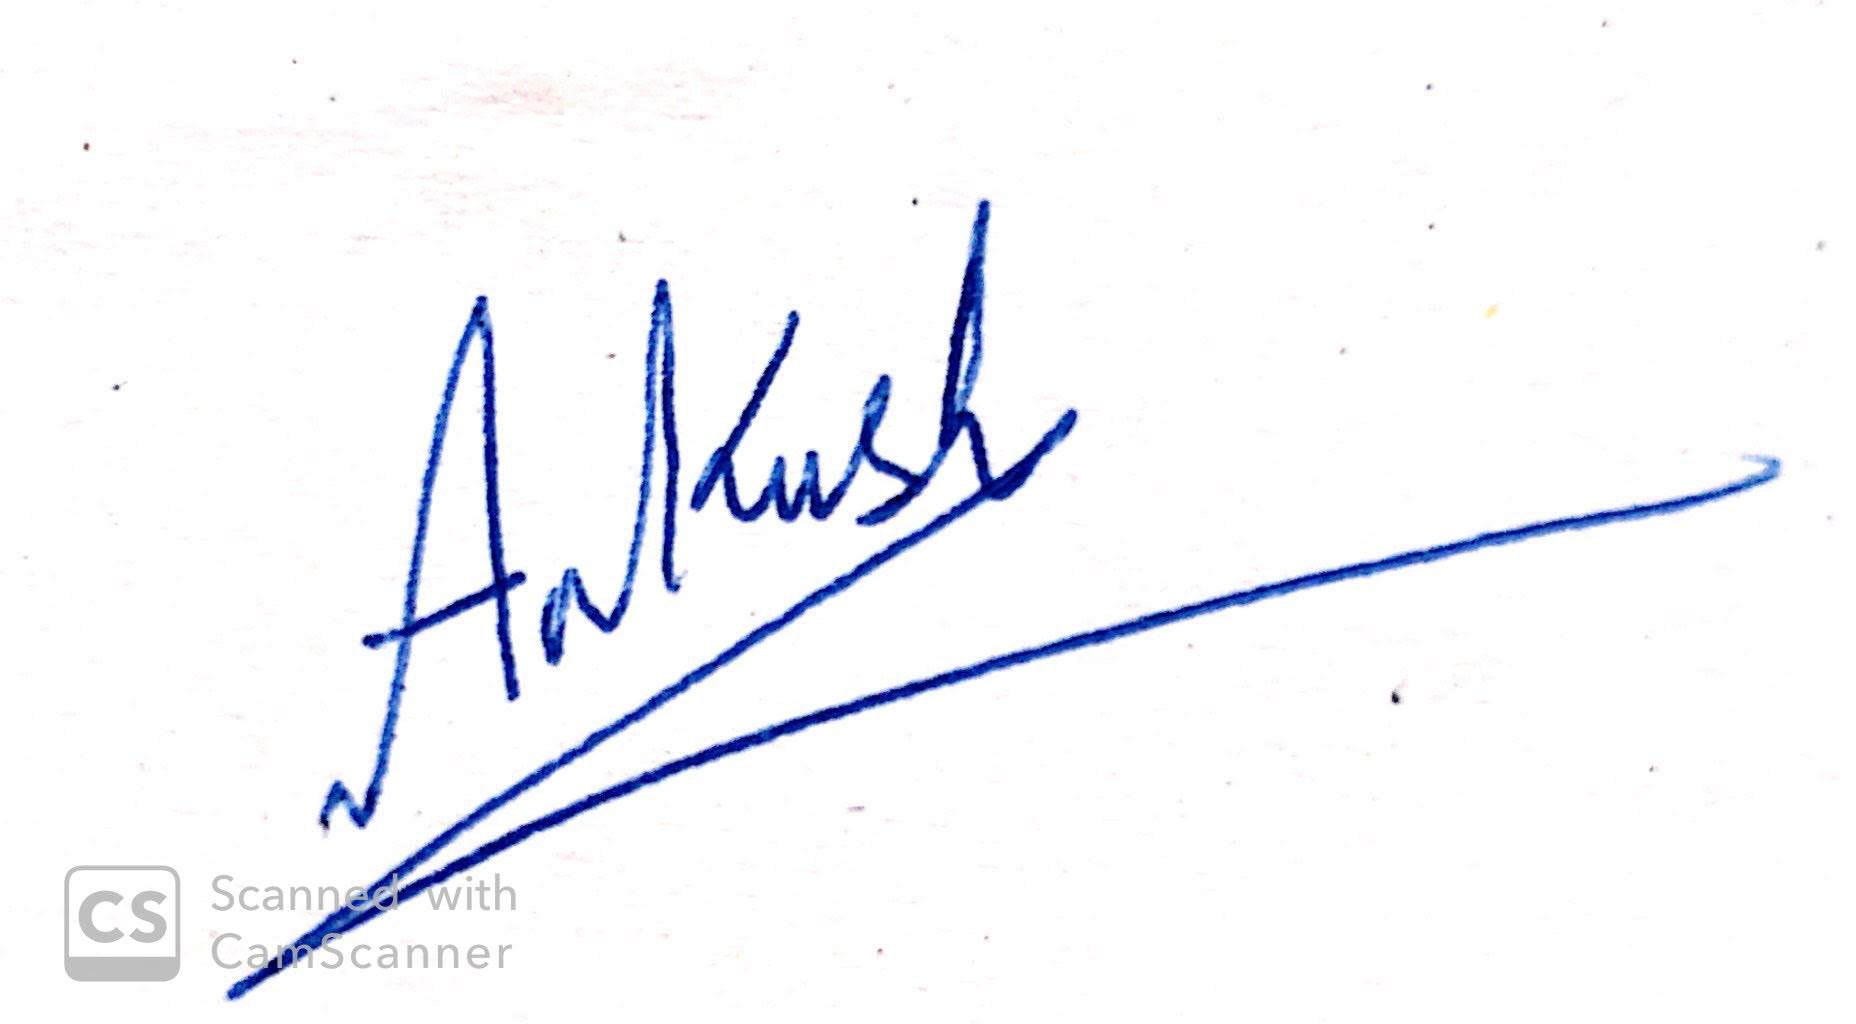 Ankush
CS
Scanned with
CamScanner